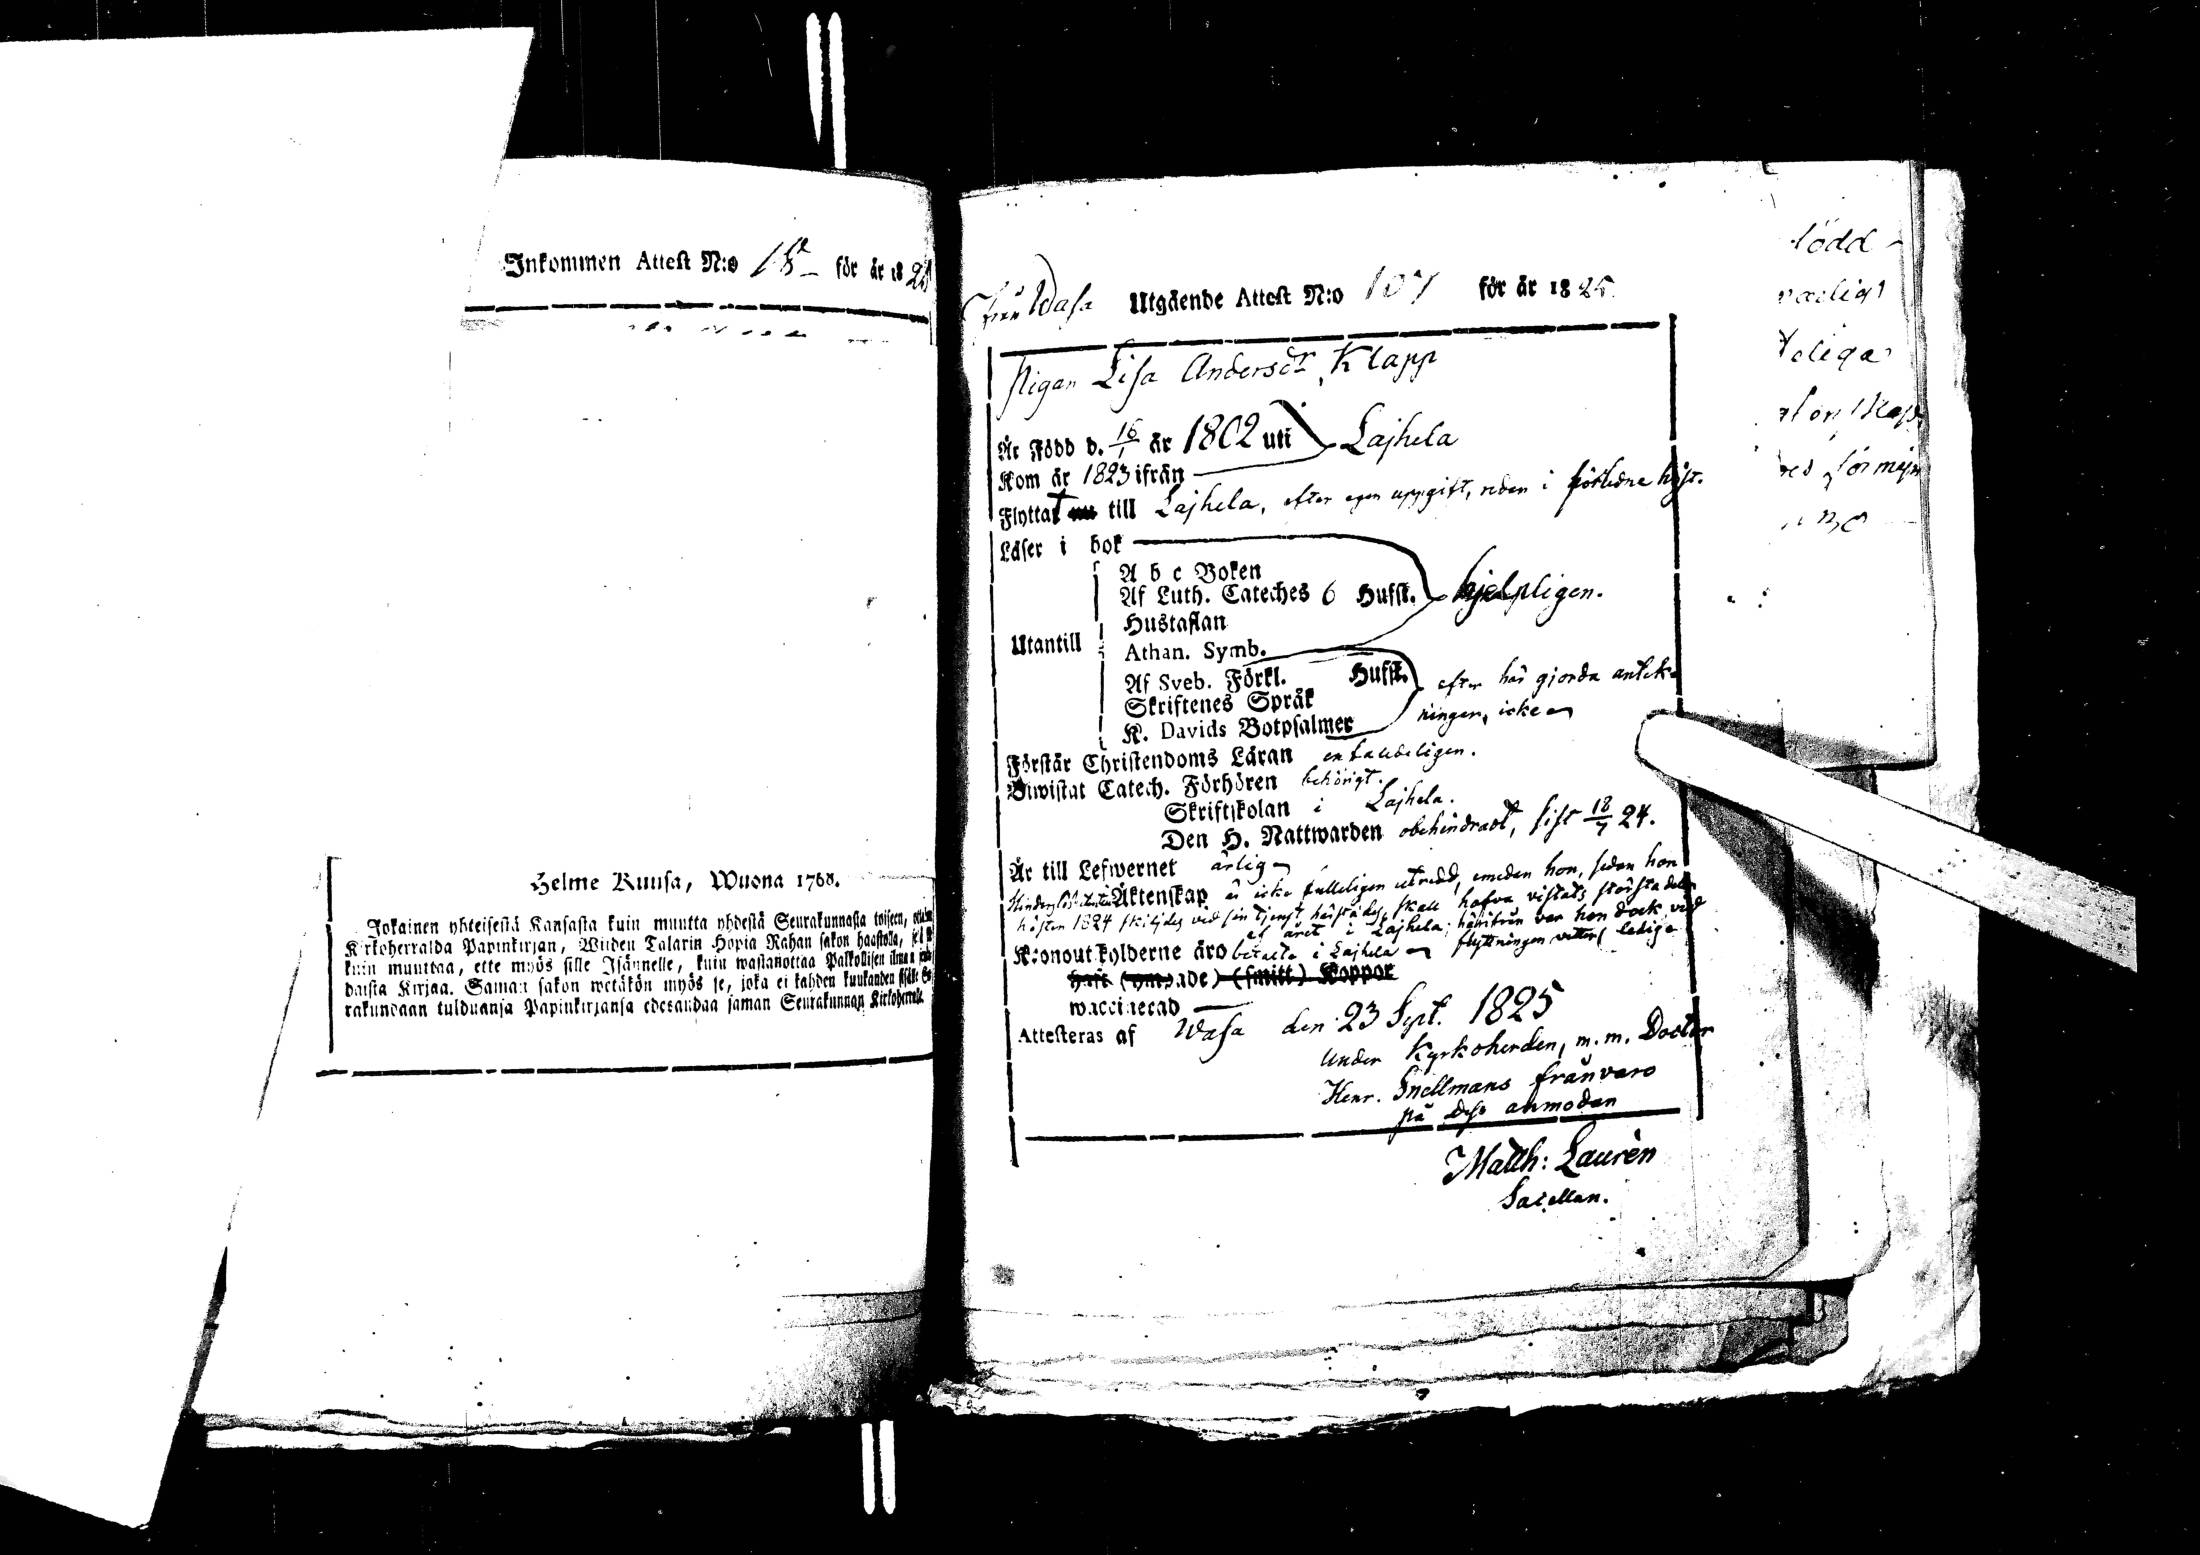 Inkommen Attest N:o 18 för år 18
Helme Kuusa, Wuona 1768.
Jokainen yhteisestä Kansasta kuin muutta yhdestä Seurakunnasta toiseen,
Kirkoherralda Papinkirjan, Wiiden Talarin Hopia Rahan sakon haastolla,
kuin muuttaa, ette myös sille Isännelle, kuin wastanottaa Palkollisen ilman
daista Kirjaa. Saman sakon wetäkön myös se, joka ei kahden kuukauden sisälle
rakundaan tulduansa Papinkirjansa edesandaa saman Seurakunnan Kirkoherralle.
från Wasa Utgående Attest N:o 107 för år 1825.
Pigan Lisa Andersdr Klapp
Är Född d. 16/1 år 1802 uti Lajhela
Kom år 1823 ifrån
Flyttat nu till Lajhela, efter egen uppgift, redan i förledne höst.
Läser i bok
A b c Boken
Af Luth. Cateches 6 Hufst. hjelpligen.
Hustaflan
Utantill
Athan. Symb.
Af Sveb. Förkl. Hufst. efter här gjorda anteck-
Skriftenes Språk
ningar, icke
K. Davids Botpsalmer
Förstår Christendoms Läran enfaldeligen.
Biwistat Catech. Förhören behörigt.
Skriftskolan i Lajhela.
Den H. Nattwarden obehindradt, sist 18/7 24.
Är till Lefwernet ärlig
Äktenskap är icke fulleligen utredd, emedan hon, sedan hon
hösten 1824 skiljdes ved sin tjenst härstädes, skall hafva vistats största delen
af året i Lajhela; härifrån var hon dock vid
Kronoutskylderne äro betalta i Lajhela flyttningen veterl. ledig
haft (smitt) Koppor
waccinerad
Attesteras af Wasa den 23 Sept. 1825
Under Kyrkoherden, m. m. Doctor
Henr. Snellmans frånvaro
på dess anmodan
Matth: Laurén
Sacellan.